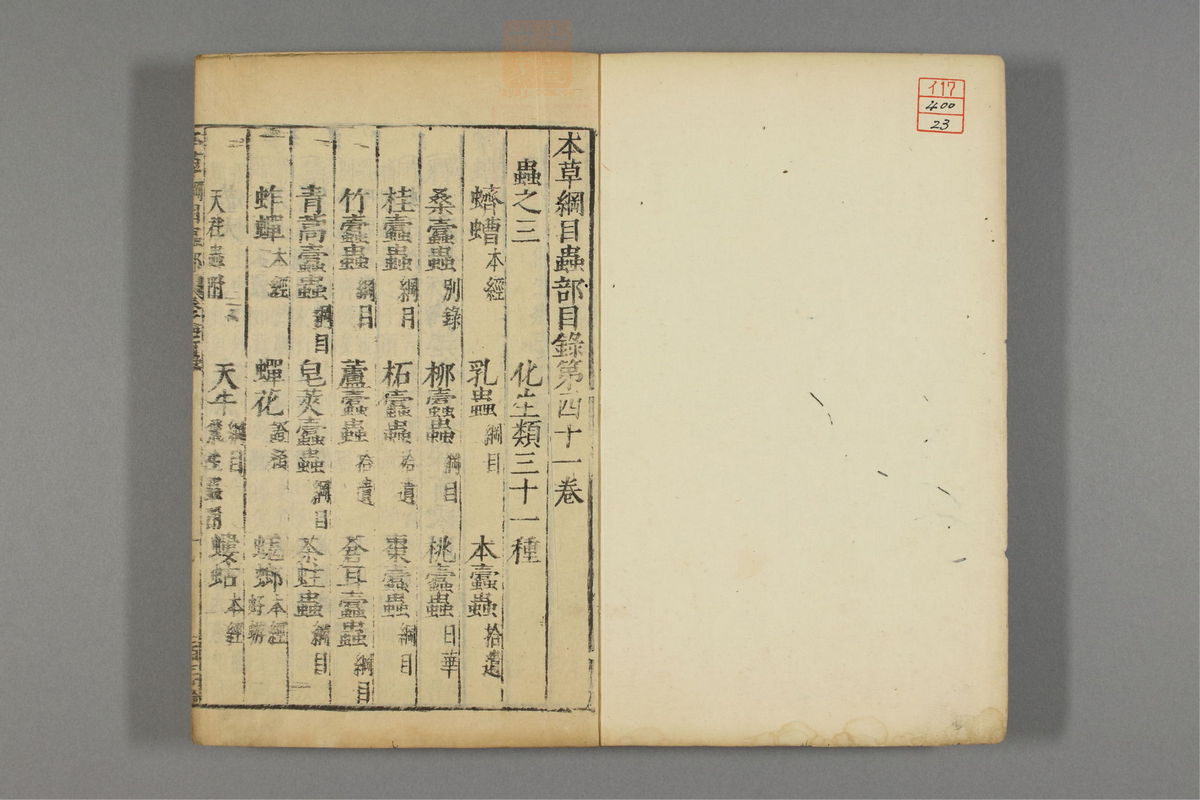 本草綱目蟲部目錄第四十一卷
蟲之三 化生類三十一種
蠐螬 本經 乳蟲 綱目 本蠹蟲 拾遺
桑蠹蟲 別錄 柳蠹蟲 綱目 桃蠹蟲 日華
桂蠹蟲 綱目 柘蠹蟲 拾遺 棗蠹蟲 綱目
竹蠹蟲 綱目 蘆蠹蟲 拾遺 蒼耳蠹蟲 綱目
青蒿蠹蟲 綱目 皂莢蠹蟲 綱目 茶蛀蟲 綱目
蚱蟬 本經 蟬花 證類 蜣蜋 本經
天社蟲附 天牛 綱目 螻蛄 本經
117
400
23